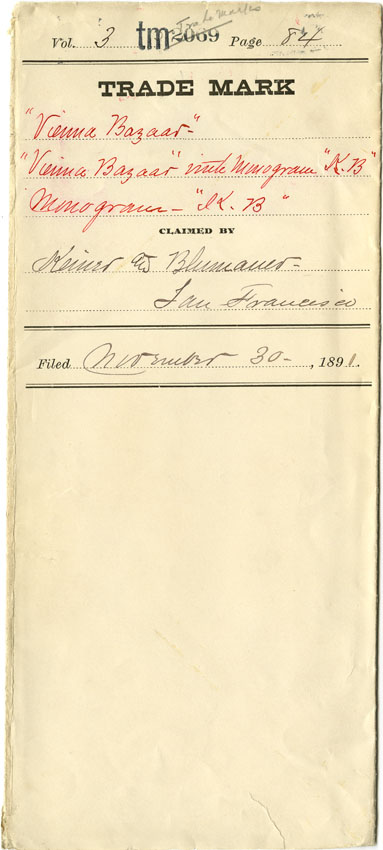 Trade Marks
Vol. 3 tm2069 Page 84
TRADE MARK
"Vienna Bazaar"
"Vienna Bazaar" with Monogram "K.B"
Monogram - "K. B"
CLAIMED BY
Keiner & Blumauer -
San Francisco
Filed November 30 - , 1891.